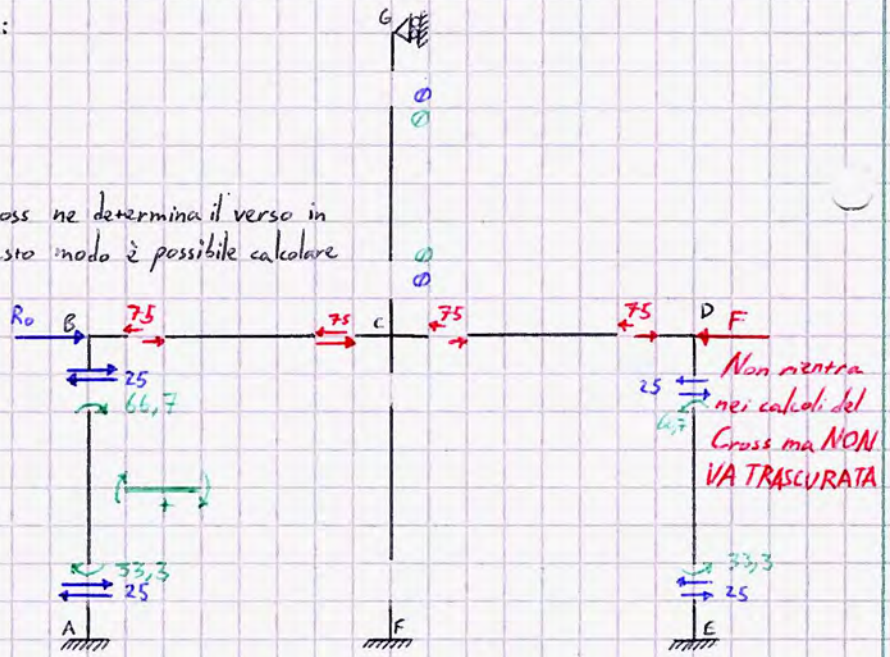 :
G
∅
∅
oss ne determina il verso in
sto modo è possibile calcolare
∅
∅
R₀ B 75 75 C 75 75 D F
25 25 Non rientra
66,7 6,7 nei calcoli del
Cross ma NON
VA TRASCURATA
+
33,3 33,3
25 25
A F E